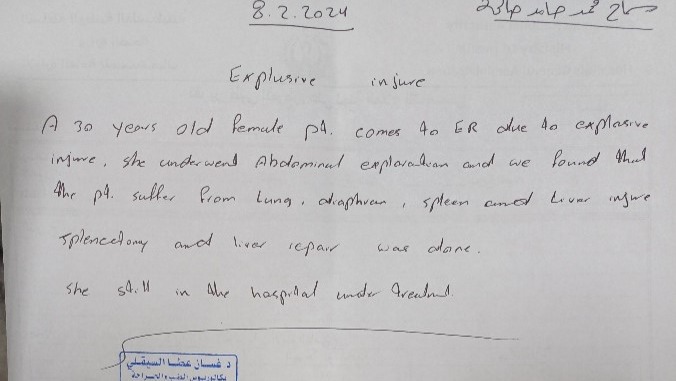 8.2.2024
Explusive injure
A 30 years old female pt. comes to ER due to explosive
injure. she underwend Abdominal exploration and we found that
the pt. suffer from Lung, diaphram, spleen and Liver injure
splenectomy and liver repair was done.
she still in the hospital under treatment.
د. غسان السيقلي
بكالوريوس الطب والجراحة